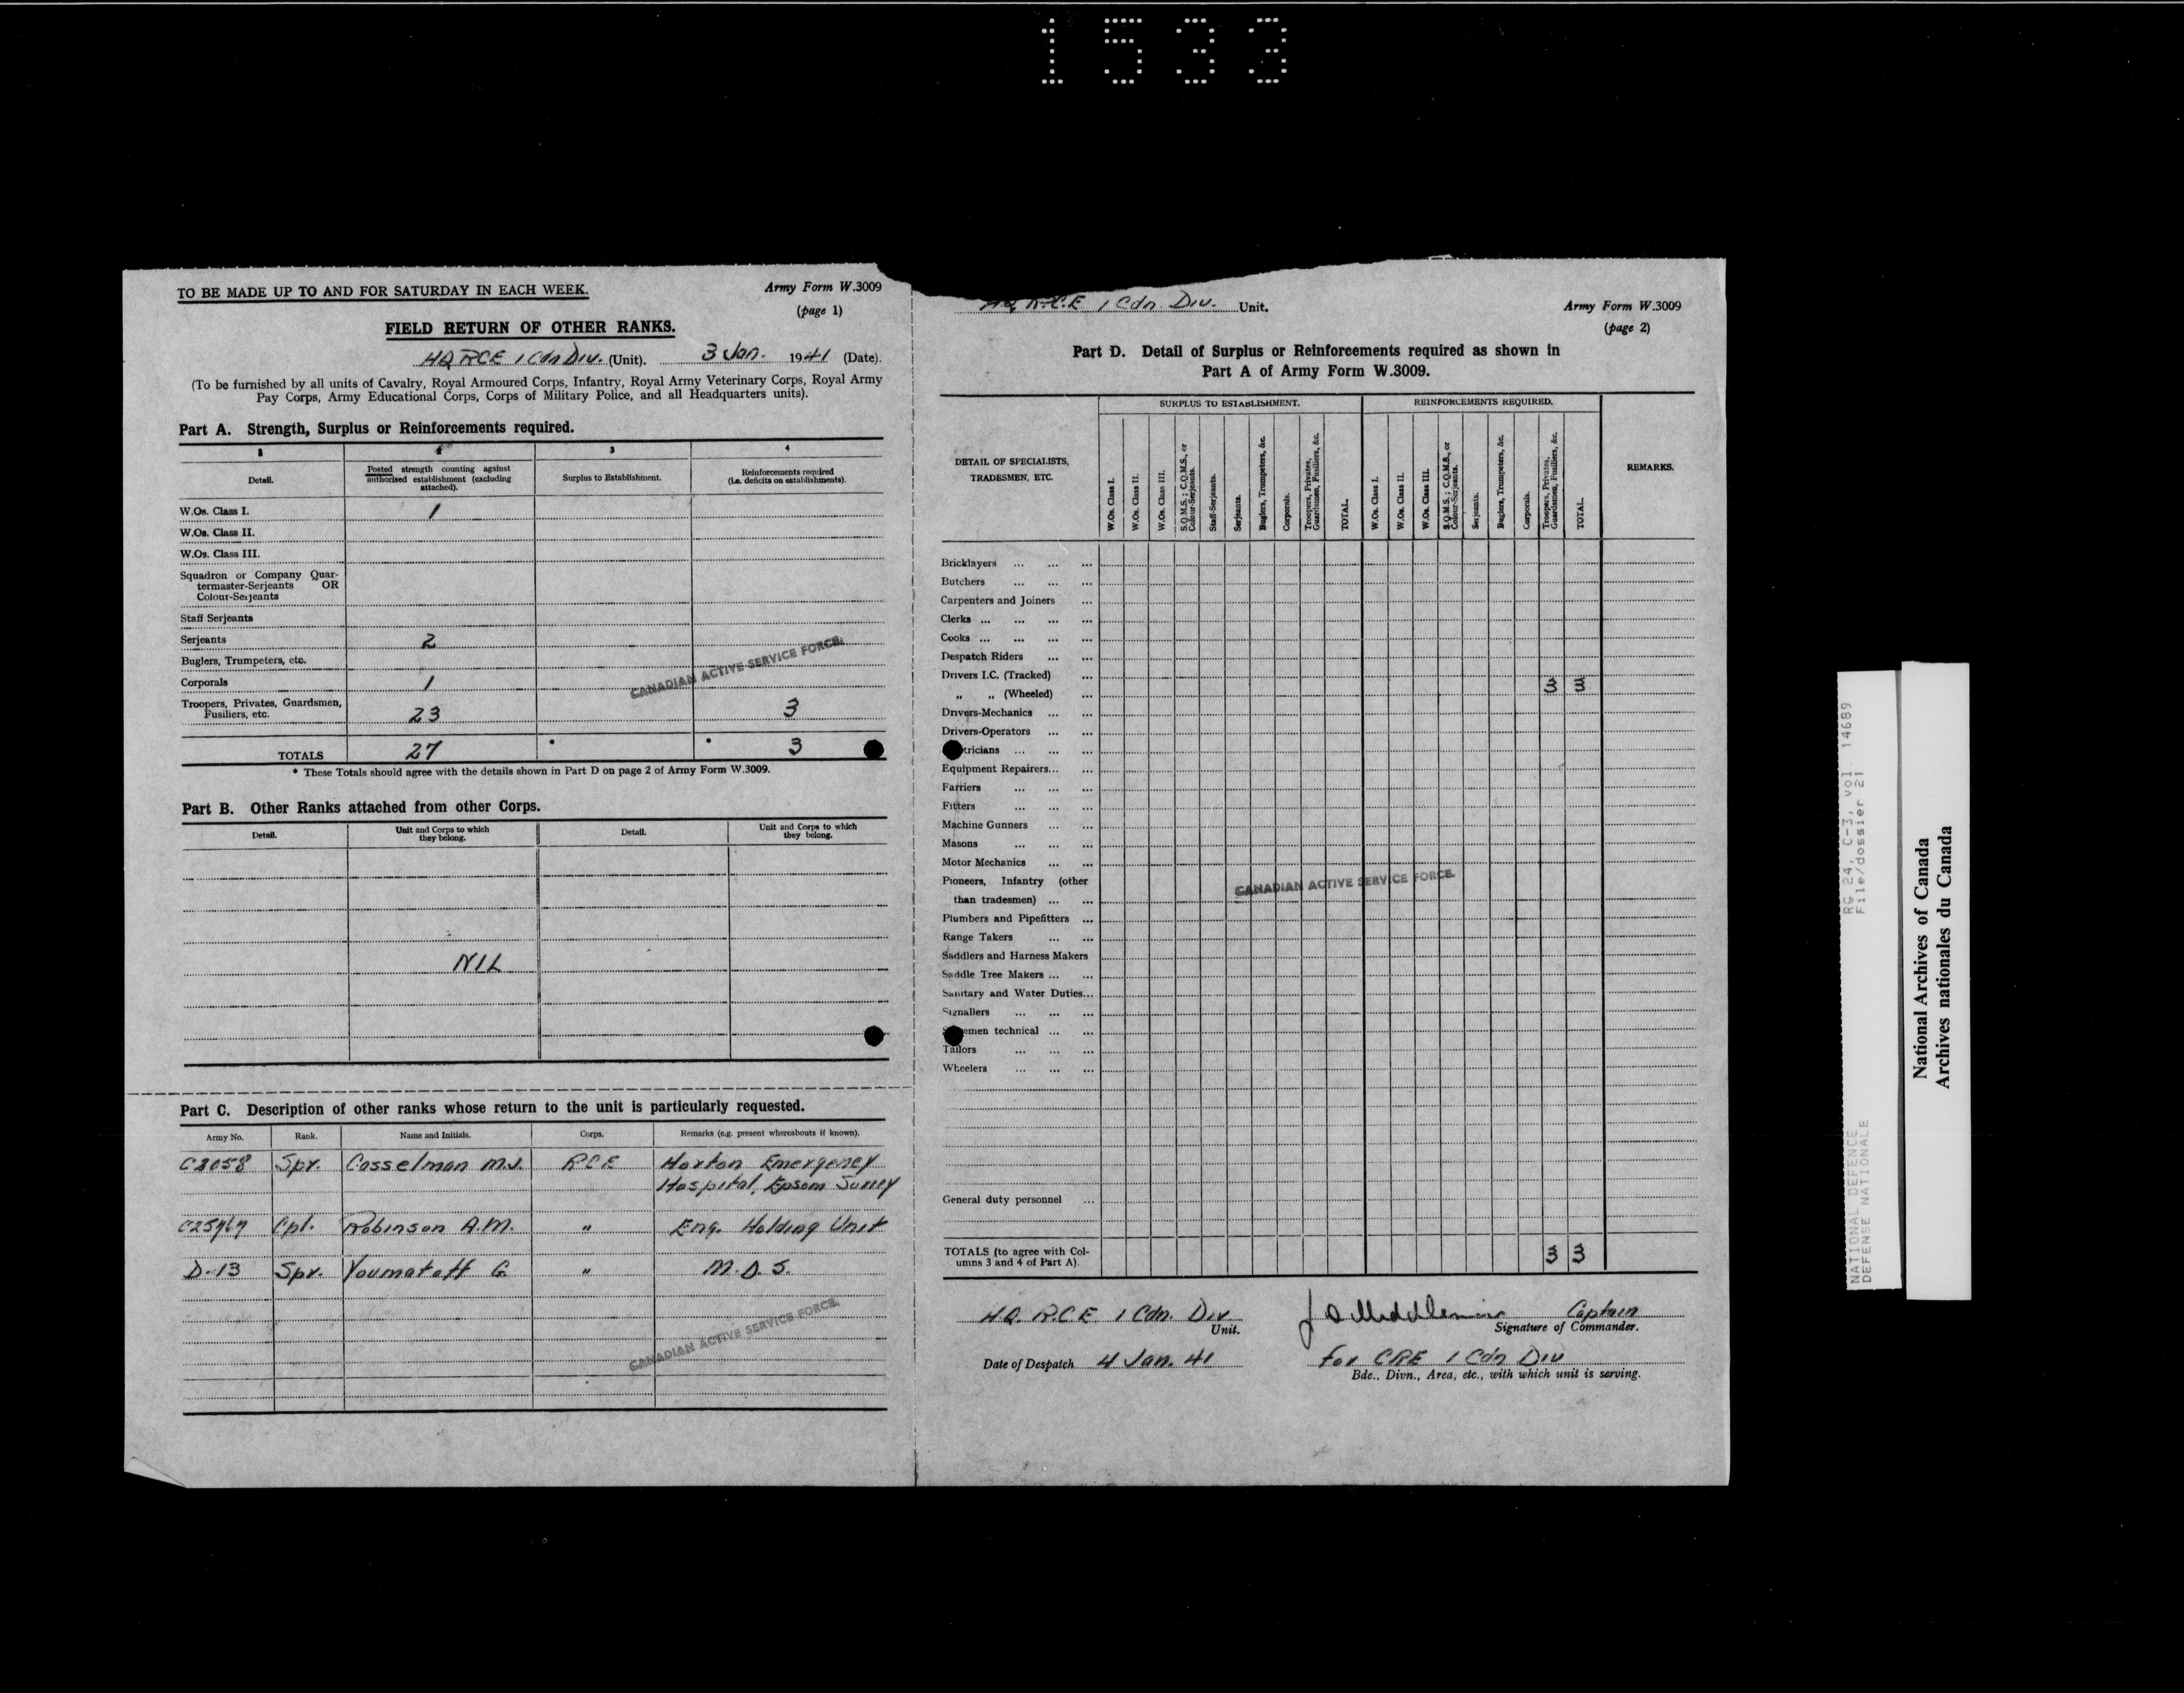 1533
TO BE MADE UP TO AND FOR SATURDAY IN EACH WEEK.
Army Form W.3009
(page 1)
FIELD RETURN OF OTHER RANKS.
HQ RCE 1 Cdn Div. (Unit). 3 Jan. 1941 (Date).
(To be furnished by all units of Cavalry, Royal Armoured Corps, Infantry, Royal Army Veterinary Corps, Royal Army
Pay Corps, Army Educational Corps, Corps of Military Police, and all Headquarters units).
Part A. Strength, Surplus or Reinforcements required.
3 4
Detail. Posted strength counting against authorised establishment (excluding attached). Surplus to Establishment. Reinforcements required (i.e. deficits on establishments).
W.Os. Class I. 1
W.Os. Class II.
W.Os. Class III.
Squadron or Company Quar-
termaster-Serjeants OR
Colour-Serjeants
Staff Serjeants
Serjeants 2
Buglers, Trumpeters, etc.
Corporals 1
Troopers, Privates, Guardsmen,
Fusiliers, etc. 23 3
CANADIAN ACTIVE SERVICE FORCE.
TOTALS 27 * * 3
* These Totals should agree with the details shown in Part D on page 2 of Army Form W.3009.
Part B. Other Ranks attached from other Corps.
Detail. Unit and Corps to which they belong. Detail. Unit and Corps to which they belong.
NIL
Part C. Description of other ranks whose return to the unit is particularly requested.
Army No. Rank. Name and Initials. Corps. Remarks (e.g. present whereabouts if known).
C3058 Spr. Casselman M.J. RCE Horton Emergency
Hospital, Epsom Surrey
Cpl. Robinson A.M. " Eng. Holding Unit
D-13 Spr. Youmatoff G. " M.D.S.
CANADIAN ACTIVE SERVICE FORCE.
HQ R.C.E 1 Cdn. Div. Unit.
Army Form W.3009
(page 2)
Part D. Detail of Surplus or Reinforcements required as shown in
Part A of Army Form W.3009.
SURPLUS TO ESTABLISHMENT. REINFORCEMENTS REQUIRED.
DETAIL OF SPECIALISTS,
TRADESMEN, ETC.
W.Os. Class I.
W.Os. Class II.
W.Os. Class III.
S.Q.M.S.; C.Q.M.S., or Colour-Serjeants.
Staff-Serjeants.
Serjeants.
Buglers, Trumpeters, &c.
Corporals.
Troopers, Privates, Guardsmen, Fusiliers, &c.
TOTAL.
W.Os. Class I.
W.Os. Class II.
W.Os. Class III.
S.Q.M.S.; C.Q.M.S., or Colour-Serjeants.
Serjeants.
Buglers, Trumpeters, &c.
Corporals.
Troopers, Privates, Guardsmen, Fusiliers, &c.
TOTAL.
REMARKS.
Bricklayers ... ... ...
Butchers ... ... ...
Carpenters and Joiners ...
Clerks ... ... ... ...
Cooks ... ... ... ...
Despatch Riders ... ...
Drivers I.C. (Tracked) ...
" " (Wheeled) ... 3 3
Drivers-Mechanics ... ...
Drivers-Operators ... ...
tricians ... ... ...
Equipment Repairers... ...
Farriers ... ... ...
Fitters ... ... ...
Machine Gunners ... ...
Masons ... ... ...
Motor Mechanics ... ...
Pioneers, Infantry (other
than tradesmen) ... ...
CANADIAN ACTIVE SERVICE FORCE.
Plumbers and Pipefitters ...
Range Takers ... ...
Saddlers and Harness Makers
Saddle Tree Makers ... ...
Sanitary and Water Duties...
Signallers ... ... ...
emen technical ... ...
Tailors ... ... ...
Wheelers ... ... ...
General duty personnel ...
TOTALS (to agree with Col-
umns 3 and 4 of Part A). 3 3
HQ. R.C.E 1 Cdn. Div Unit.
Captain
Signature of Commander.
Date of Despatch 4 Jan. 41
for CRE 1 Cdn Div
Bde., Divn., Area, etc., with which unit is serving.
NATIONAL DEFENCE RG 24, C-3, vol. 14689
DEFENSE NATIONALE File/dossier 21
National Archives of Canada
Archives nationales du Canada